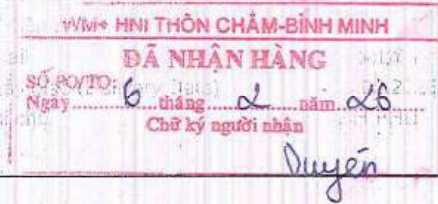 WM+ HNI THÔN CHẤM-BÌNH MINH
ĐÃ NHẬN HÀNG
SỐ PO/TO:
Ngày 6 tháng 2 năm 26
Chữ ký người nhận
Duyến